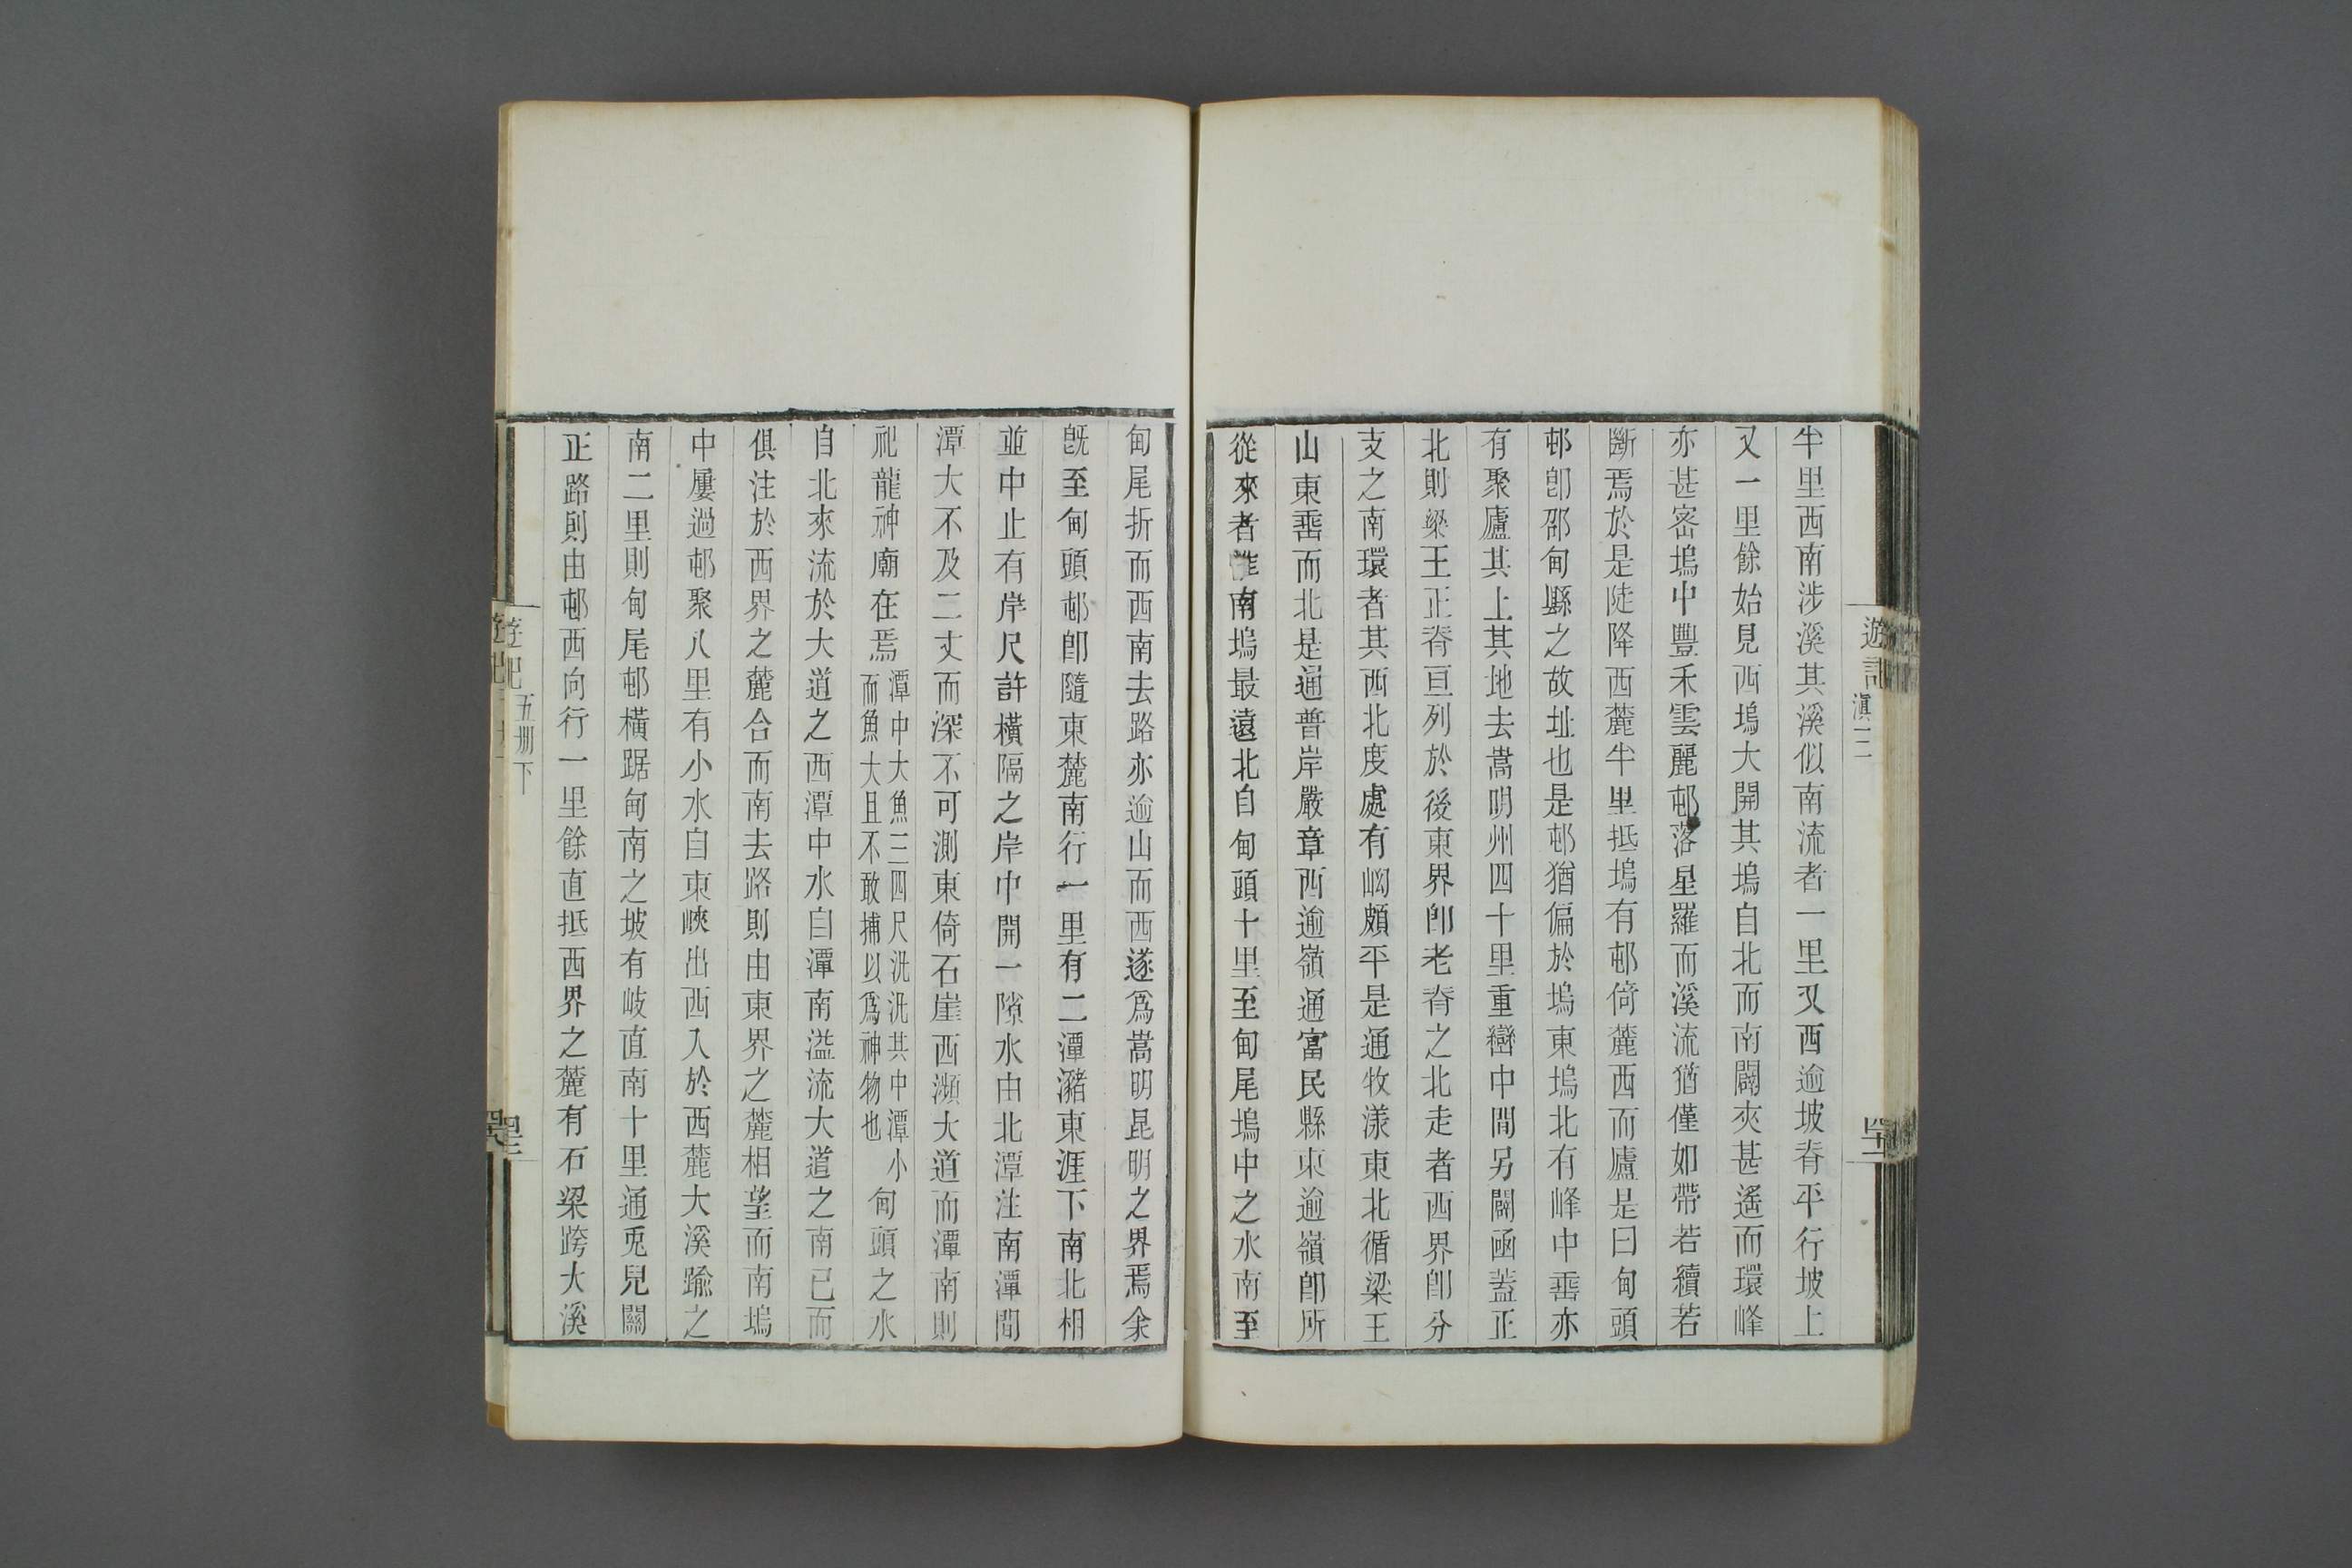 遊記
滇三
半里西南涉溪其溪似南流者一里又西逾坡脊平行坡上
又一里餘始見西塢大開其塢自北而南闢夾甚遙而環峰
亦甚密塢中豐禾雲麗邨落星羅而溪流猶僅如帶若續若
斷焉於是陡降西麓半里抵塢有邨倚麓西而廬是曰甸頭
邨卽邵甸縣之故址也是邨猶偏於塢東塢北有峰中垂亦
有聚廬其上其地去嵩明州四十里重巒中間另闢函蓋正
北則梁王正脊亘列於後東界卽老脊之北走者西界卽分
支之南環者其西北度處有㘭頗平是通牧漾東北循梁王
山東垂而北是通普岸嚴章西逾嶺通富民縣東逾嶺卽所
從來者惟南塢最遠北自甸頭十里至甸尾塢中之水南至
甸尾折而西南去路亦逾山而西遂爲嵩明昆明之界焉余
旣至甸頭邨卽隨東麓南行一里有二潭瀦東涯下南北相
並中止有岸尺許橫隔之岸中開一隙水由北潭注南潭間
潭大不及二丈而深不可測東倚石崖西瀕大道而潭南則
祀龍神廟在焉
潭中大魚三四尺泛泛其中潭小
而魚大且不敢捕以爲神物也
甸頭之水
自北來流於大道之西潭中水自潭南溢流大道之南已而
俱注於西界之麓合而南去路則由東界之麓相望而南塢
中屢過邨聚八里有小水自東峽出西入於西麓大溪踰之
南二里則甸尾邨橫踞甸南之坡有岐直南十里通兎兒關
正路則由邨西向行一里餘直抵西界之麓有石梁跨大溪
遊記
五册下